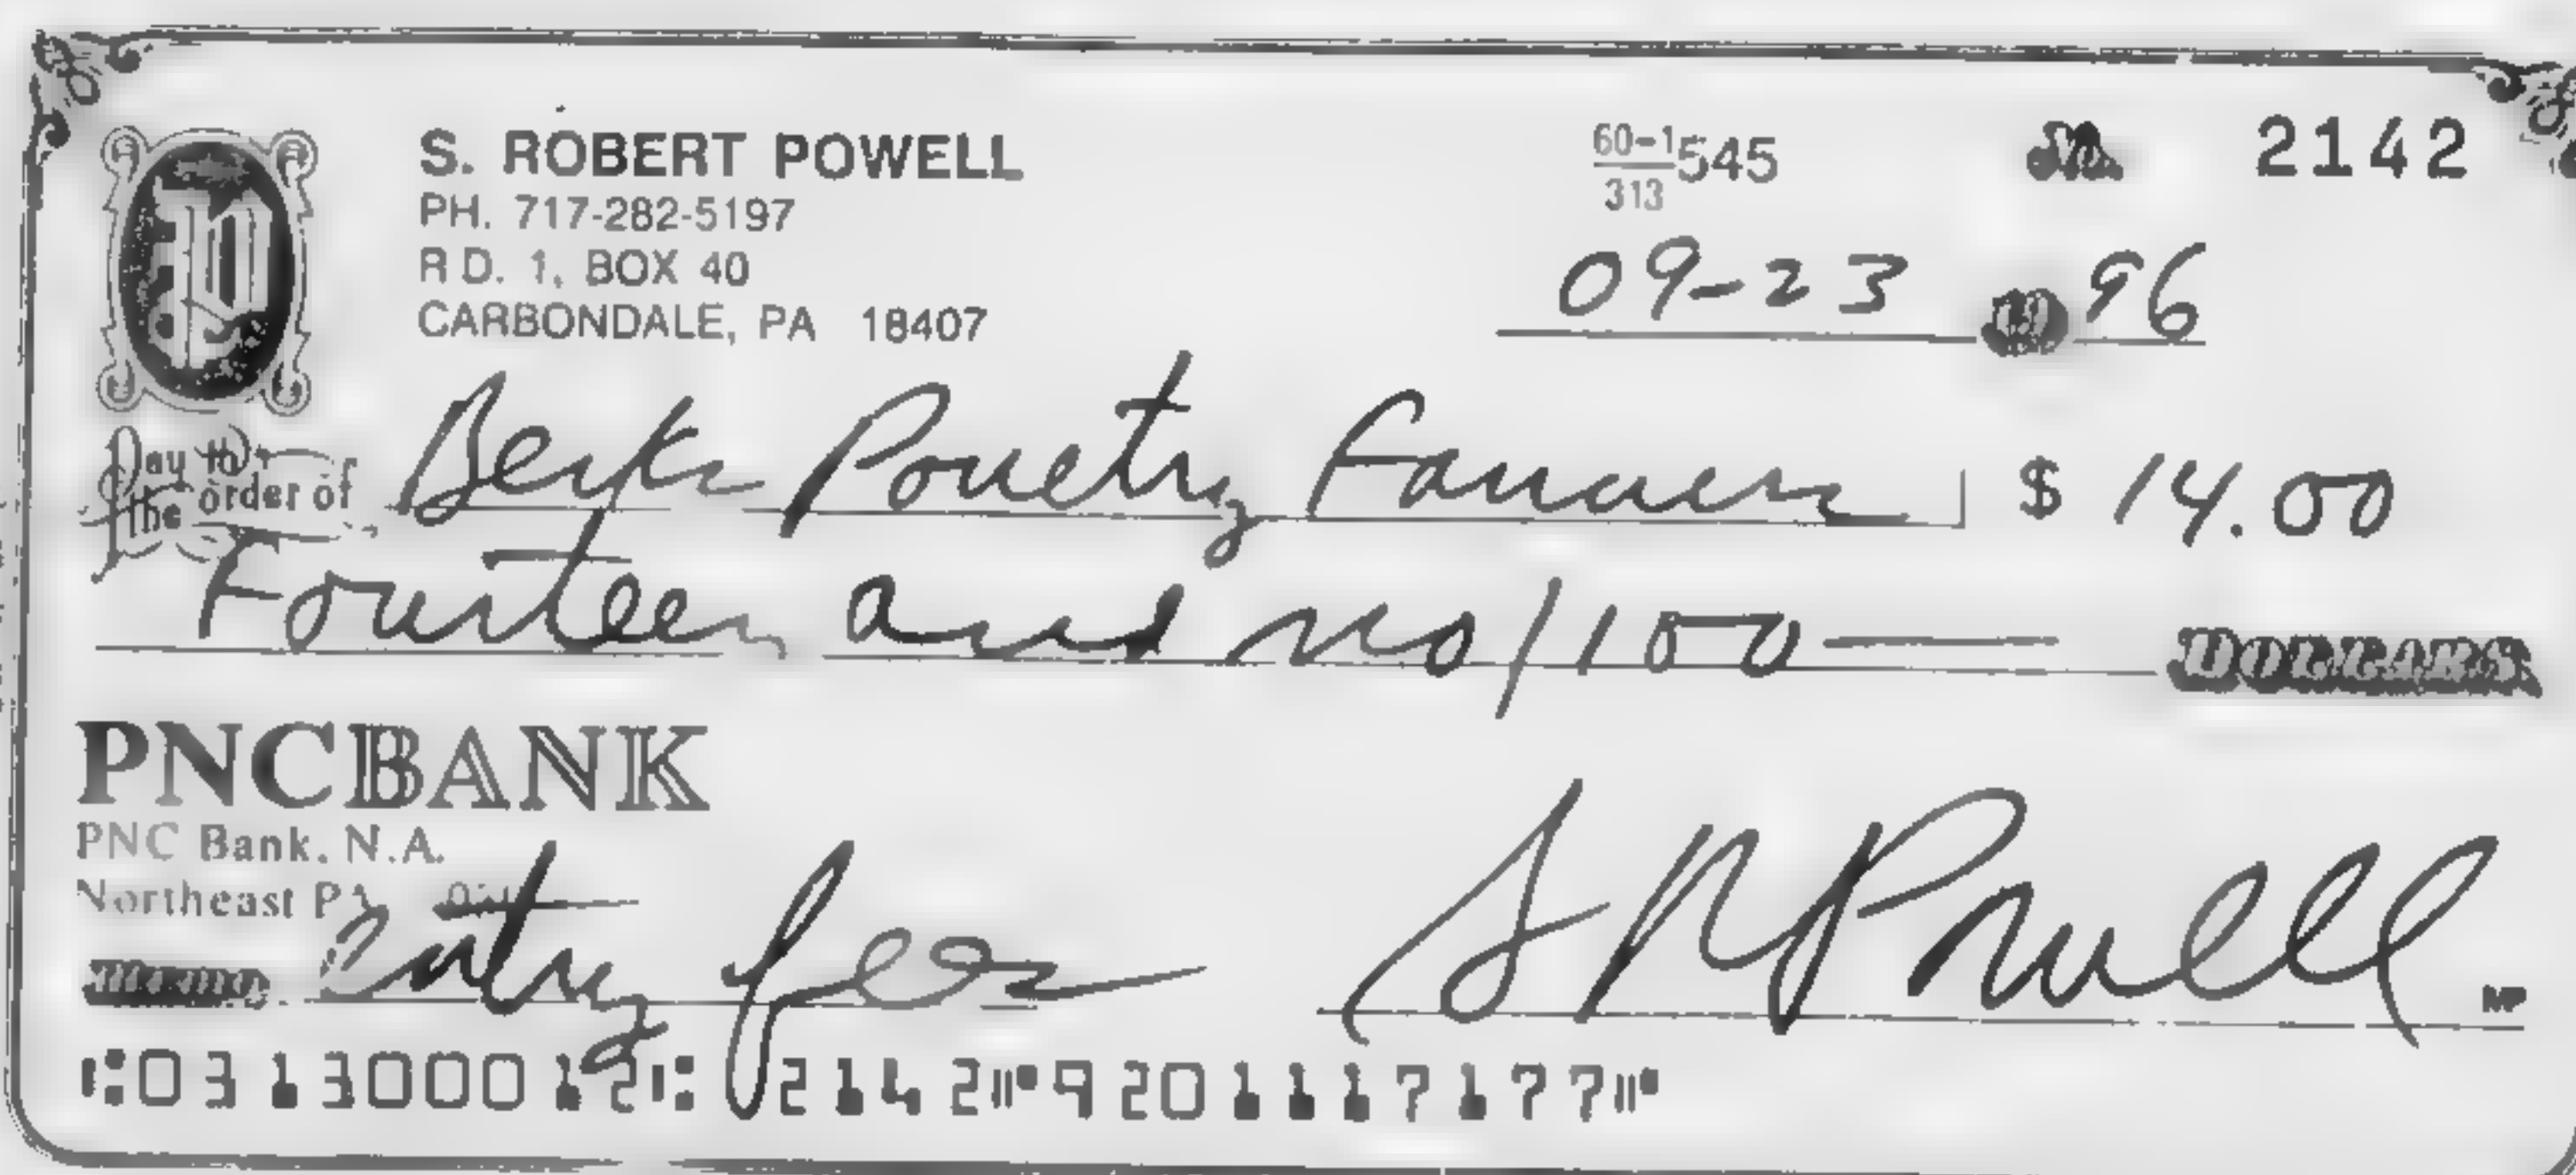 S. ROBERT POWELL
PH. 717-282-5197
R D. 1, BOX 40
CARBONDALE, PA 18407
60-1545
313
No. 2142
09-23 19 96
Pay to the order of Berks Pouetry Fanciers $ 14.00
Fourteen and no/100 — DOLLARS
PNCBANK
PNC Bank, N.A.
Northeast PA
Memo entry fees S R Powell MP
⑆031300012⑆ 2142⑈9201117177⑈